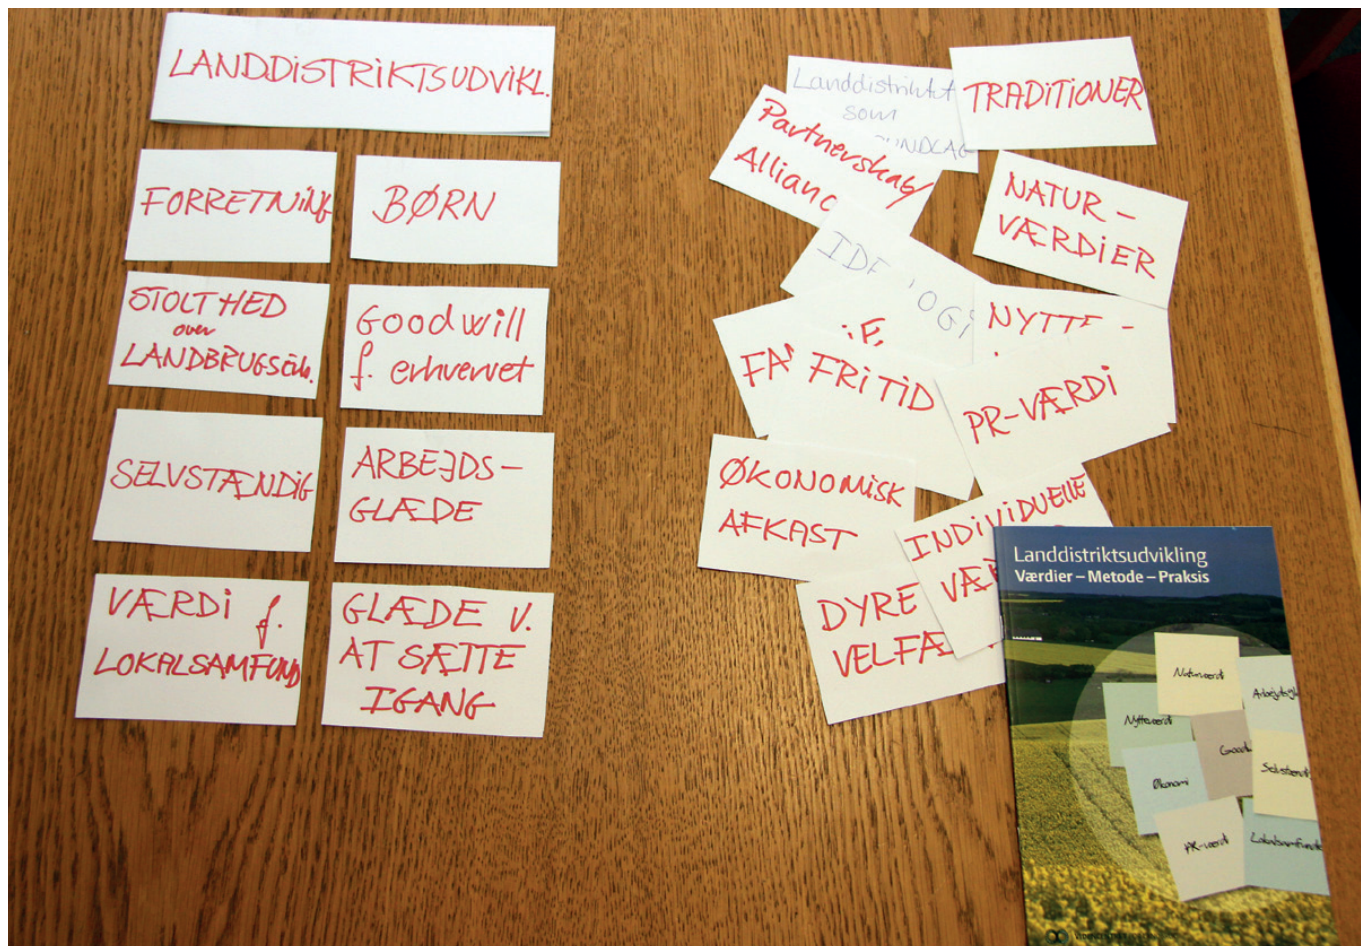 LANDDISTRIKTSUDVIKL.
FORRETNING
BØRN
STOLTHED
over
LANDBRUGSErh.
Goodwill
f. erhvervet
SELVSTÆNDIG
ARBEJDS-
GLÆDE
VÆRDI f.
LOKALSAMFUND
GLÆDE V.
AT SÆTTE
IGANG
Landdistriktet
som
TRADITIONER
Partnerskab/
Allianc
NATUR-
VÆRDIER
NYTTE-
FRITID
PR-VÆRDI
ØKONOMISK
AFKAST
INDIVIDUELLE
VÆR
DYRE
VELFÆ
Landdistriktsudvikling
Værdier – Metode – Praksis
Naturværdi
Nytteværdi
Økonomi
PR-værdi